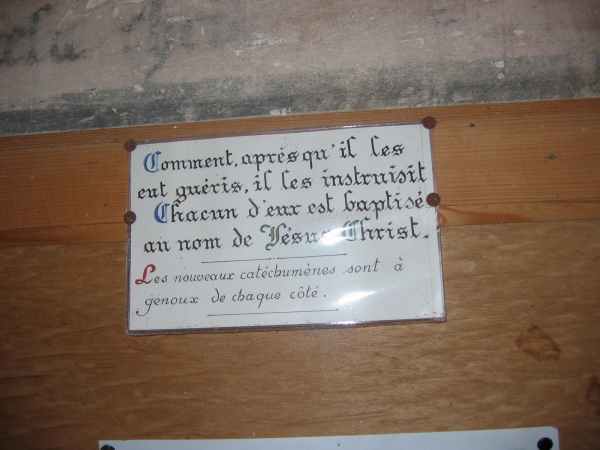 Comment, après qu'il les
eut guéris, il les instruisit
Chacun d'eux est baptisé
au nom de Jésus Christ.
Les nouveaux catéchumènes sont à
genoux de chaque côté.